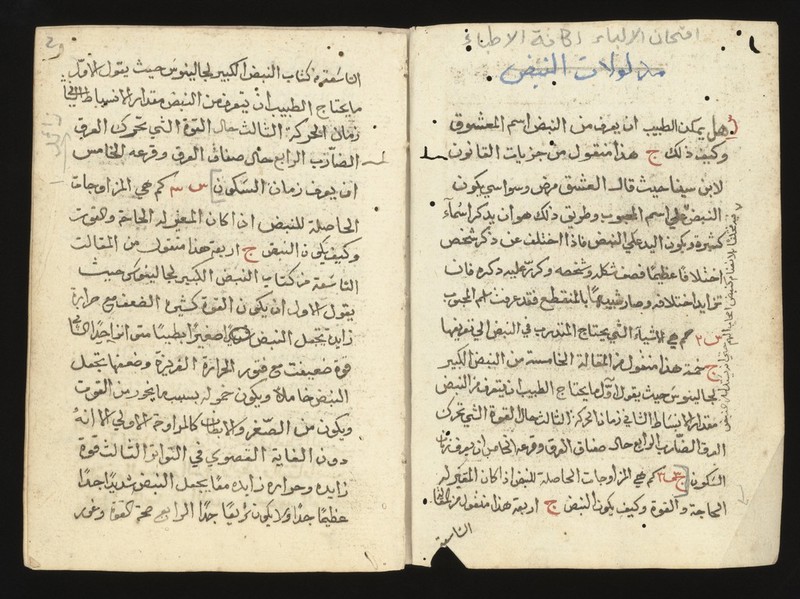 امتحان الالباء لكافة الاطباء
مدلولات النبض
هل يمكن الطبيب ان يعرف من النبض اسم المعشوق
وكيف ذلك ج هذا منقول من جزيات القانون
لابن سينا حيث قال العشق مرض وسواسي يكون
النبض اسم المحبوب وطريق ذلك هو أن يذكر اسماء
كثيرة ويكون اليد على النبض فاذا اختلف عن ذكر شخص
اختلافا عظيما فصف شكله وشخصه وكرر عليه ذكره فان
تزايد اختلافه وصار شبيها بالمنقطع فقد عرفت اسم المحبوب
س ٢ كم هي الاشياء التي يحتاج المتدرب في النبض الى تعرفها
ج خمسة هذا منقول من المقالة الخامسة من النبض الكبير
لجالينوس حيث يقول اوّلا ما يحتاج الطبيب ان يتعرف من النبض
مقدار الانبساط الثاني زمان الحركة الثالث حال القوة التي تحرك
العرق الضارب الرابع حال صفاق العرق وقرعه الخامس ان يعرف زمان
السكون س ٣ كم هي المزاوجات الحاصلة للنبض اذا كان المغير له
الحاجة والقوة وكيف يكون النبض ج اربعة هذا منقول من المقالة
التاسعة
التاسعة من كتاب النبض الكبير لجالينوس حيث يقول الاول
ما يحتاج الطبيب ان يتعرف من النبض مقدار الانبساط الثاني
زمان الحركة الثالث حال القوة التي تحرك العرق
الضارب الرابع حال صفاق العرق وقرعه الخامس
ان يعرف زمان السكون س ٣ كم هي المزاوجات
الحاصلة للنبض اذا كان المغير له الحاجة والقوة
وكيف يكون النبض ج اربعة هذا منقول من المقالت
التاسعة من كتاب النبض الكبير لجالينوس حيث
يقول الاول ان يكون القوة كثيرة الضعف مع حرارة
زايدة تجعل النبض صغيرا بطيئا متواترا جدا الثاني
قوة ضعيفت مع فتور الحرارة الغريزة وضعفها يجعل
النبض خاملا ويكون خموله بسبب ما يخور من القوت
ويكون من الصغر والابطاء كالمزاوجة الاولى الا انه
دون الغاية القصوى في التواتر الثالث قوة
زايدة وحرارة زايدة معا يجعل النبض شديدا جدا
عظيما جدا ولا يكون سريعا جدا الرابع صحة القوة وفتور